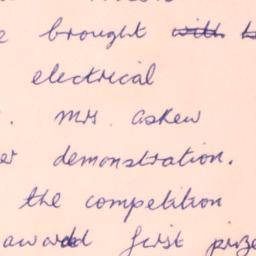 brought with
electrical
. Mrs. Askew
er demonstration.
the competition
award first prize